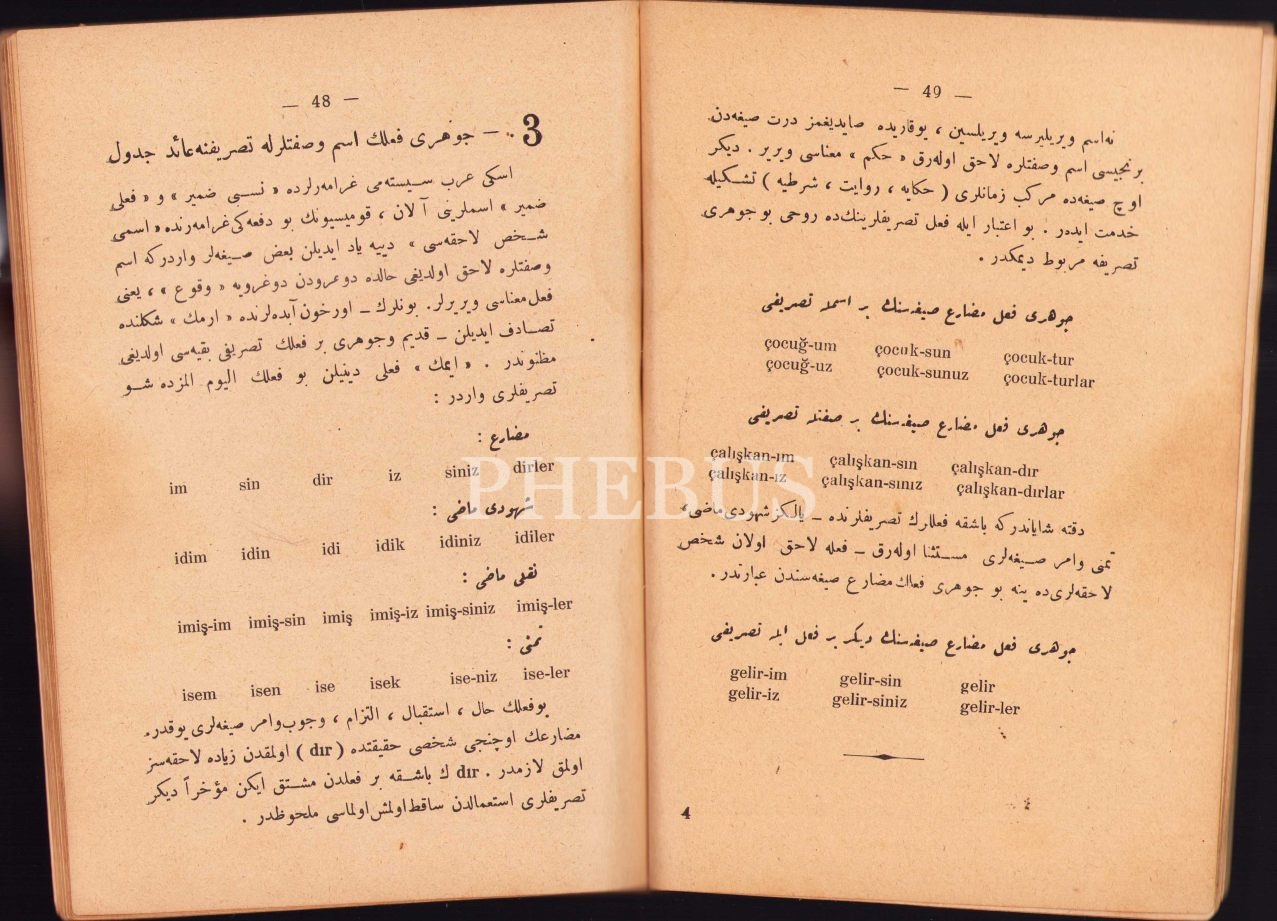 — 48 —
3 . — جوهری فعلك اسم وصفتلرله تصریفنه عائد جدول
اسكی عرب سیستەمی غرامەرلرده « نسبی ضمیر » و « فعلی
ضمیر » اسملرینی آلان ، قومیسیونك بو دفعەكی غرامەرنده « اسمی
شخص لاحقەسی » دییه یاد ایدیلن بعض صیغەلر واردركه اسم
وصفتلره لاحق اولدیغی حالده دوغرودن دوغرویه « وقوع » ، یعنی
فعل معناسی ویریرلر. بونلرك – اورخون آبدەلرنده « ارمك » شكلنده
تصادف ایدیلن – قدیم وجوهری بر فعلك تصریفی بقیەسی اولدیغی
مظنوندر . « ایمك » فعلی دینیلن بو فعلك الیوم المزده شو
تصریفلری واردر :
مضارع :
im sin dir iz siniz dirler
شهودی ماضی :
idim idin idi idik idiniz idiler
نقلی ماضی :
imiş-im imiş-sin imiş imiş-iz imiş-siniz imiş-ler
تمنی :
isem isen ise isek ise-niz ise-ler
بوفعلك حال ، استقبال ، التزام ، وجوب وامر صیغەلری یوقدر.
مضارعك اوچنجی شخصی حقیقتده ( dır ) اولمقدن زیاده لاحقەسز
اولمق لازمدر . dır ك باشقه بر فعلدن مشتق ایكن مؤخراً دیكر
تصریفلری استعمالدن ساقط اولمش اولماسی ملحوظدر .
— 49 —
نەاسم ویریلیرسه ویریلسین ، یوقاریده صایدیغمز درت صیغەدن
برنجیسی اسم وصفتلره لاحق اولەرق « حكم » معناسی ویریر . دیكر
اوچ صیغەده مركب زمانلری ( حكایه ، روایت ، شرطیه ) تشكیله
خدمت ایدەر . بو اعتبار ایله فعل تصریفلرینك ده روحی بو جوهری
تصریفه مربوط دیمكدر .
جوهری فعل مضارع صیغەسنك بر اسمله تصریفی
çocuğ-um çocuk-sun çocuk-tur
çocuğ-uz çocuk-sunuz çocuk-turlar
جوهری فعل مضارع صیغەسنك بر صفتله تصریفی
çalışkan-ım çalışkan-sın çalışkan-dır
çalışkan-ız çalışkan-sınız çalışkan-dırlar
دقته شایاندركه باشقه فعللرك تصریفلرنده – یالكز شهودی ماضی ،
تمنی وامر صیغەلری مستثنا اولەرق – فعله لاحق اولان شخص
لاحقەلری ده ینه بو جوهری فعلك مضارع صیغەسندن عبارتدر .
جوهری فعل مضارع صیغەسنك دیكر بر فعل ایله تصریفی
gelir-im gelir-sin gelir
gelir-iz gelir-siniz gelir-ler
4
PHEBUS